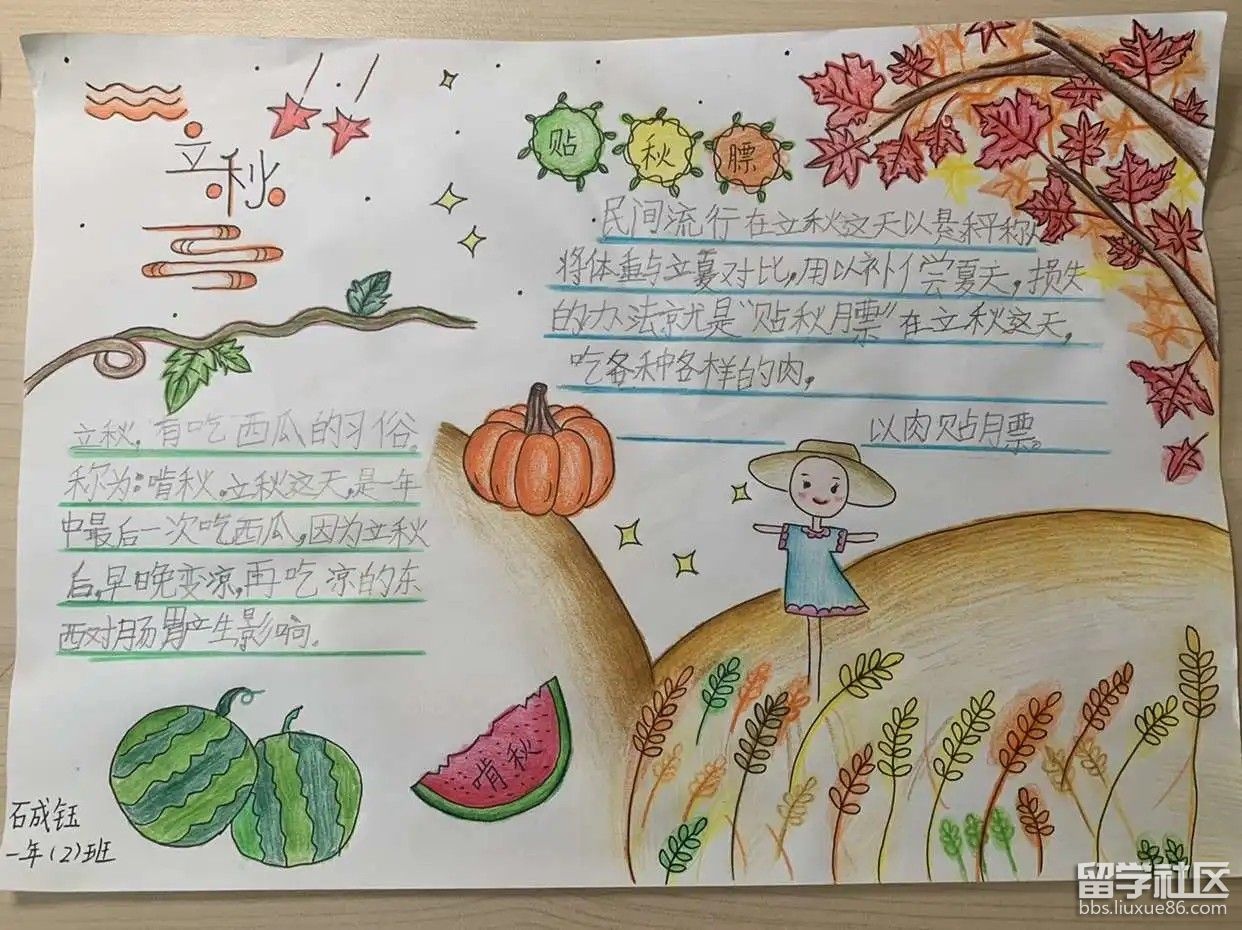 立秋
贴秋膘
民间流行在立秋这天以悬秤称人
将体重与立夏对比,用以补偿夏天,损失
的办法就是“贴秋膘”在立秋这天,
吃各种各样的肉,
以肉贴膘。
立秋,有吃西瓜的习俗。
称为:啃秋。立秋这天,是一年
中最后一次吃西瓜,因为立秋
后,早晚变凉,再吃凉的东
西对肠胃产生影响。
啃秋
石成钰
一年(2)班
留学社区
bbs.liuxue86.com